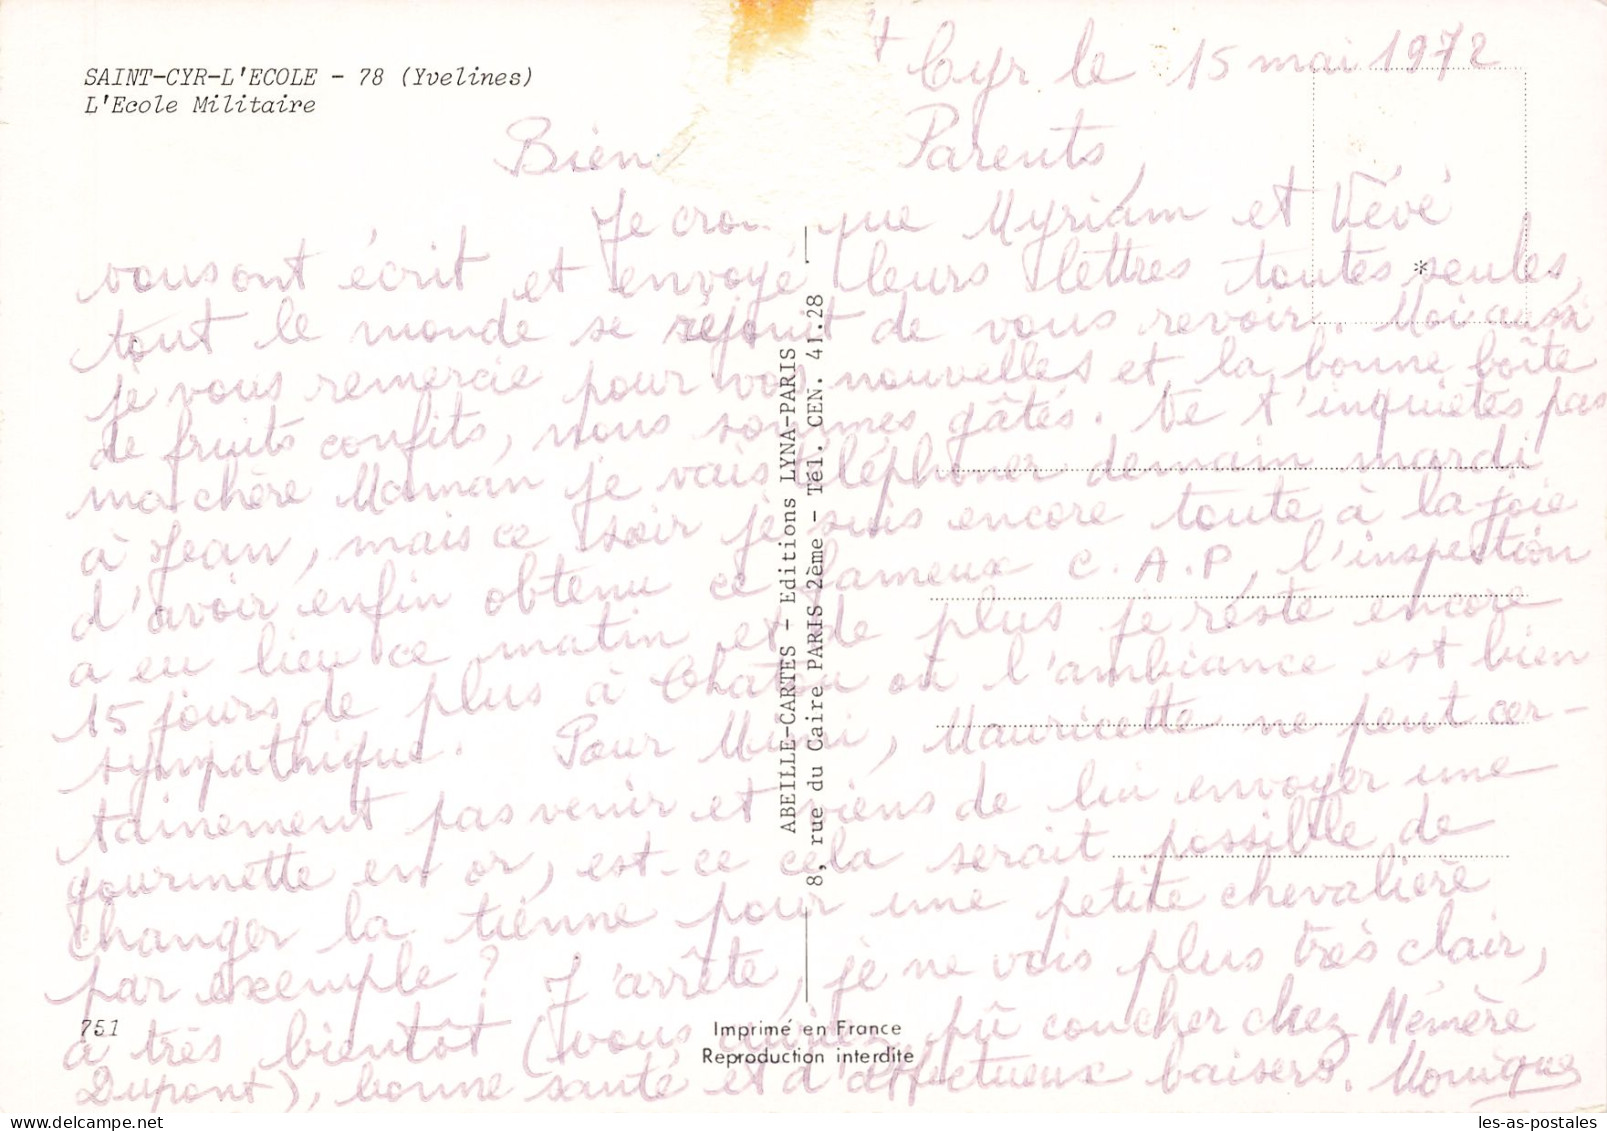 SAINT-CYR-L'ECOLE - 78 (Yvelines)
L'Ecole Militaire
t Cyr le 15 mai 1972
Bien Parents,
Je crois que Myriam et Vévé
vous ont écrit et envoyé leurs lettres toutes seules,
tout le monde se réjouit de vous revoir. Moi aussi
je vous remercie pour vos nouvelles et la bonne boîte
de fruits confits, nous sommes gâtés. Ne t'inquiètes pas
ma chère Maman je vais téléphoner demain mardi
à Jean, mais ce soir je suis encore toute à la joie
d'avoir enfin obtenu ce fameux C.A.P, l'inspection
a eu lieu ce matin et de plus je reste encore
15 jours de plus à Chatou où l'ambiance est bien
sympathique. Pour Mimi, Mauricette ne peut cer-
tainement pas venir et viens de lui envoyer une
gourmette en or, est-ce cela serait possible de
changer la tienne pour une petite chevalière
par exemple ? J'arrête, je ne vois plus très clair,
à très bientôt (vous auriez pû coucher chez Mémère
Dupont), bonne santé et d'affectueux baisers. Monique
ABEILLE-CARTES - Editions LYNA-PARIS
8, rue du Caire PARIS 2ème - Tél. CEN. 41.28
*
751
Imprimé en France
Reproduction interdite
les-as-postales